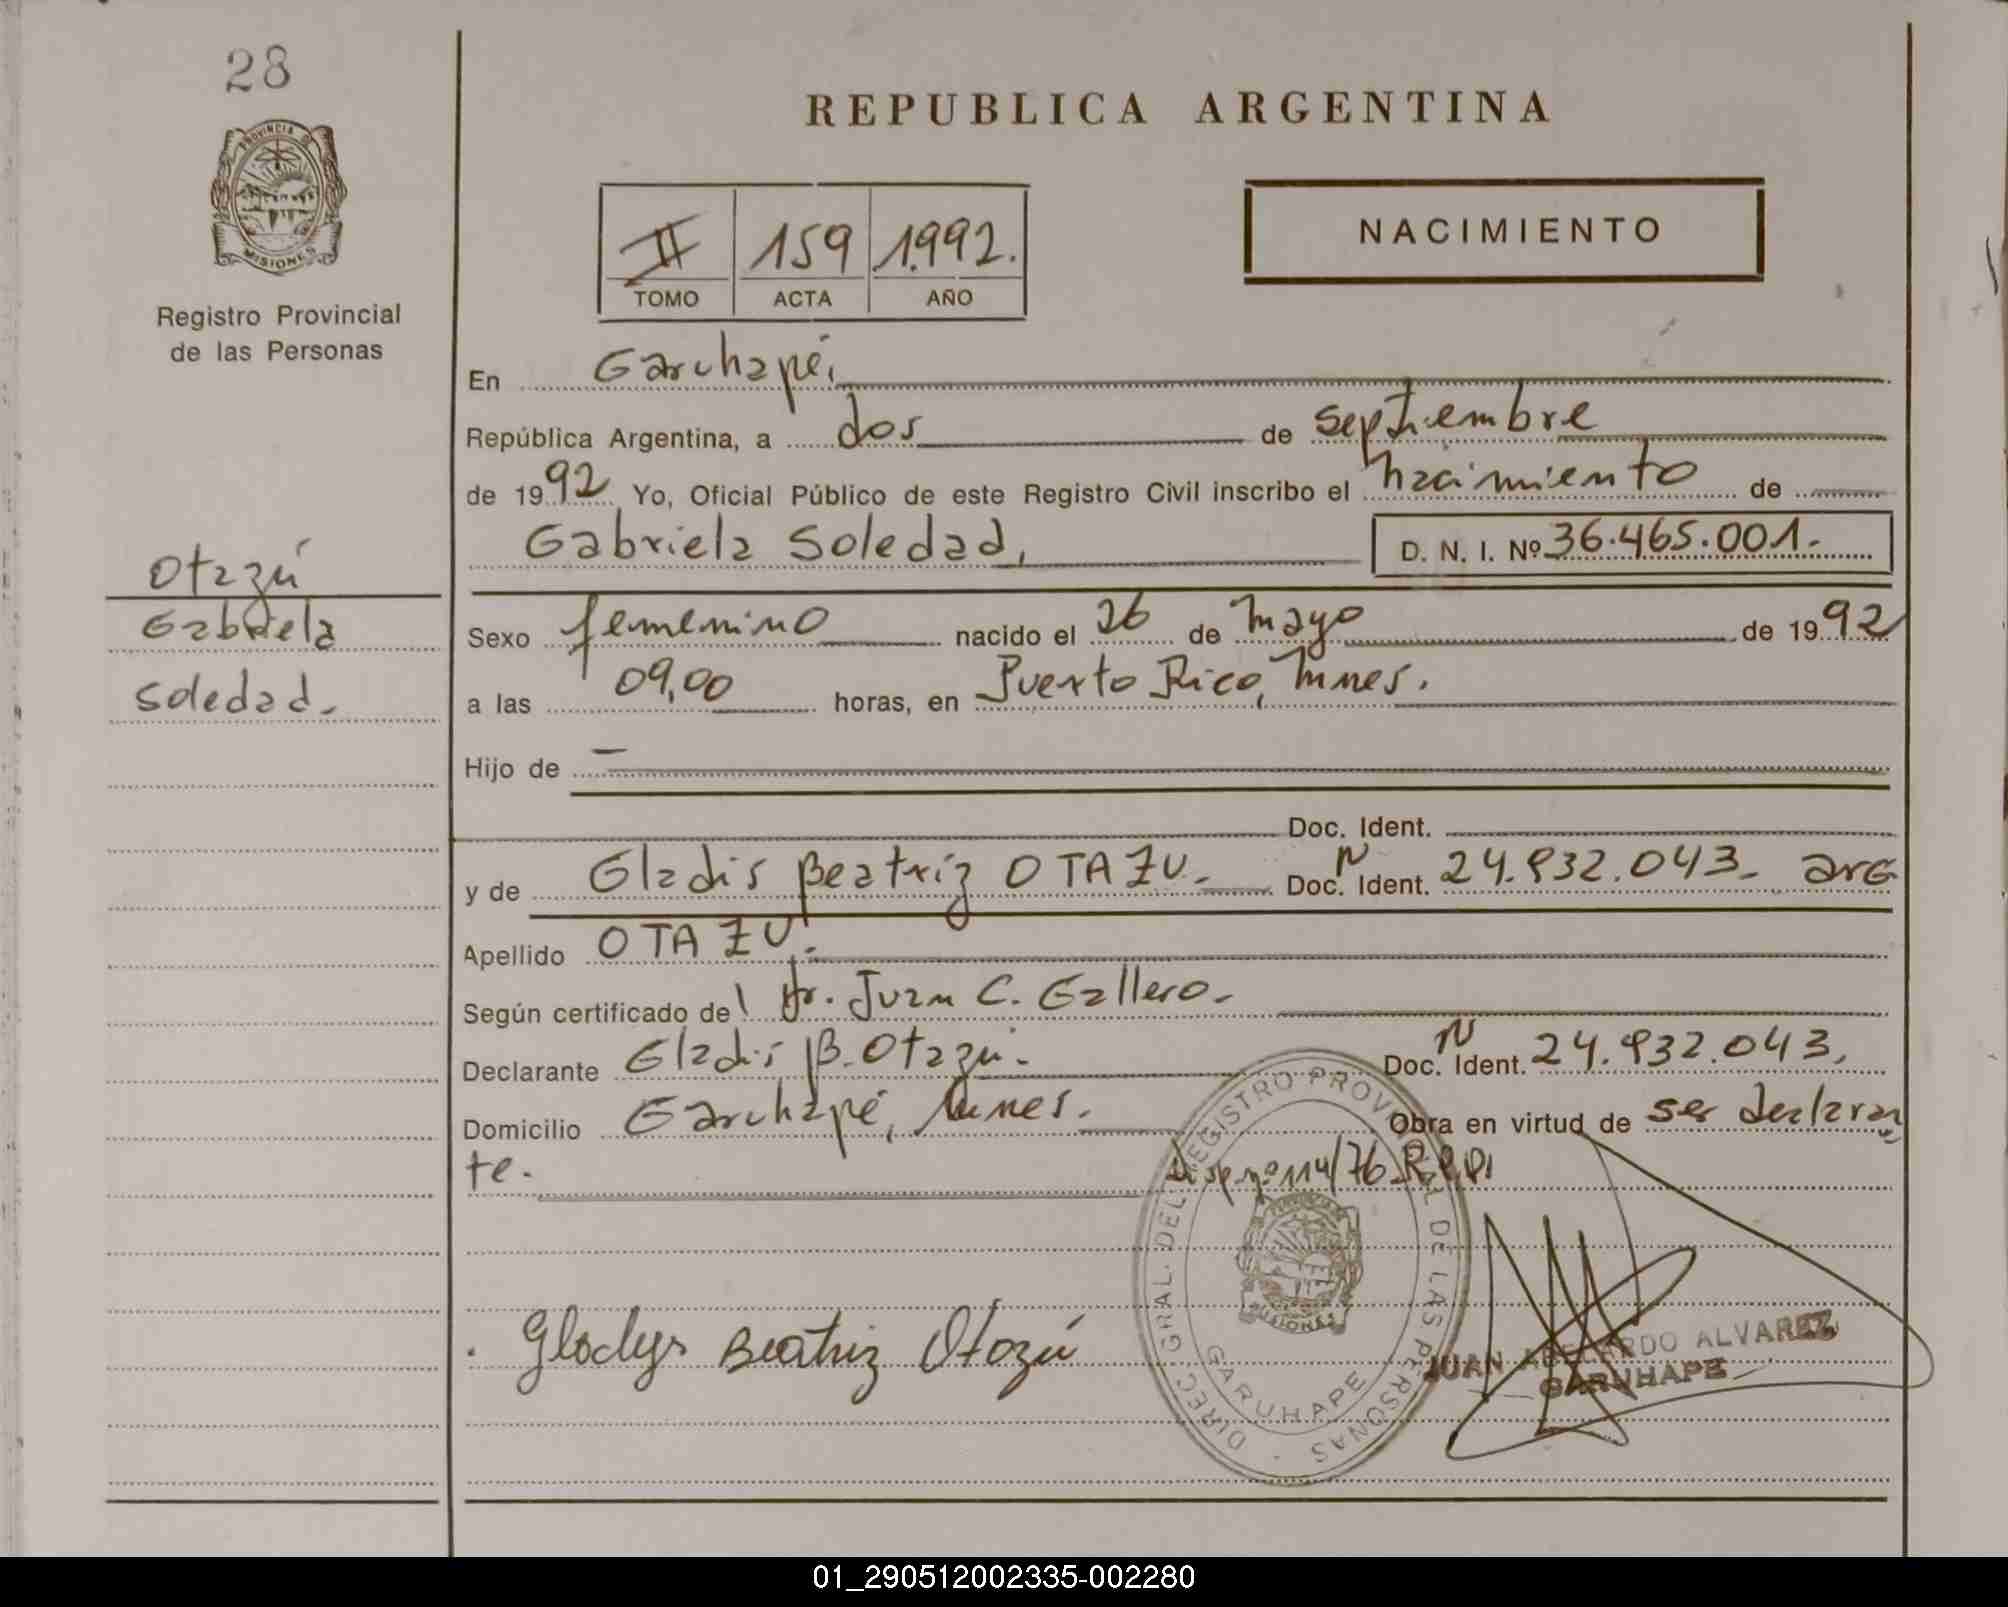 28
PROVINCIA DE
MISIONES
Registro Provincial
de las Personas
Otazú
Gabriela
Soledad.
REPUBLICA ARGENTINA
II 159 1.992.
TOMO ACTA AÑO
NACIMIENTO
En Garuhapé,
República Argentina, a dos de septiembre
de 1992 Yo, Oficial Público de este Registro Civil inscribo el nacimiento de
Gabriela Soledad, D. N. I. Nº 36.465.001.
Sexo femenino nacido el 26 de mayo de 1992
a las 09,00 horas, en Puerto Rico, Mnes.
Hijo de —
Doc. Ident.
y de Gladis Beatriz OTAZU. Doc. N Ident. 24.932.043. arg
Apellido OTAZU.
Según certificado del Dr. Juan C. Gallero.
Declarante Gladis B. Otazú. Doc. N Ident. 24.932.043.
Domicilio Garuhapé, Mnes. Obra en virtud de ser declaran
te. Disp. nº 114/76 R.P.P.
Gladys Beatriz Otazú
DIREC. GRAL. DEL REGISTRO PROVINCIAL DE LAS PERSONAS
MISIONES
GARUHAPE
JUAN ABELARDO ALVAREZ
GARUHAPE
01_290512002335-002280